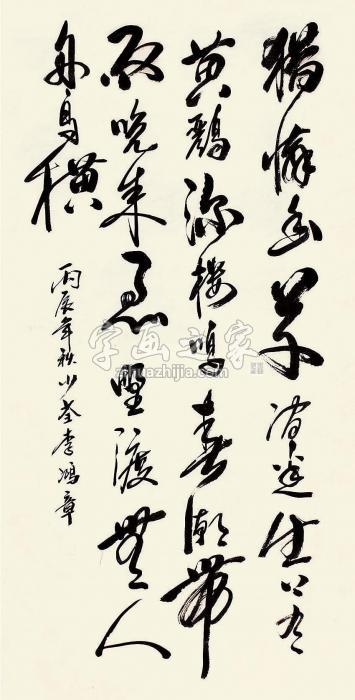 獨憐幽草澗邊生上有
黄鸝深樹鳴春潮帶
雨晚来急野渡無人
舟自横
丙辰年秋少荃李鴻章
字画之家
zihuazhijia.com